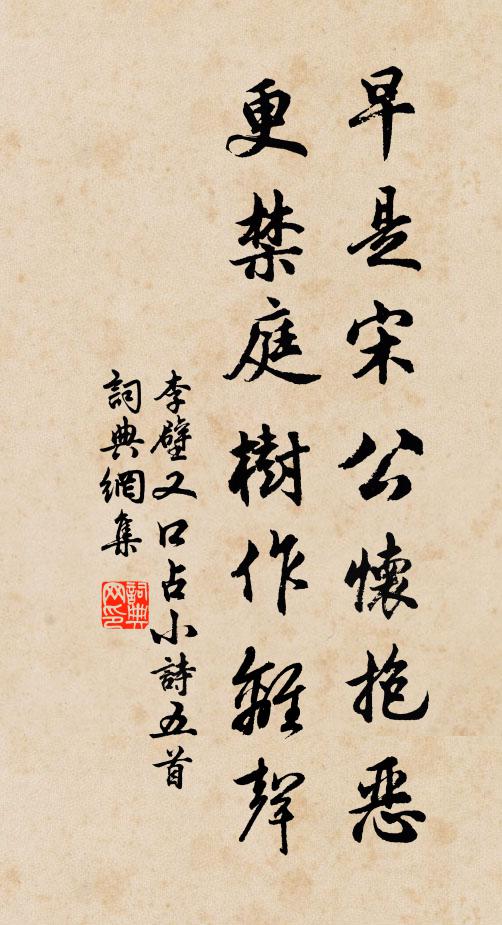 早是宋公懷抱惡
更禁庭樹作離聲
李壁又口占小詩五首
詞典網集
詞典
网印